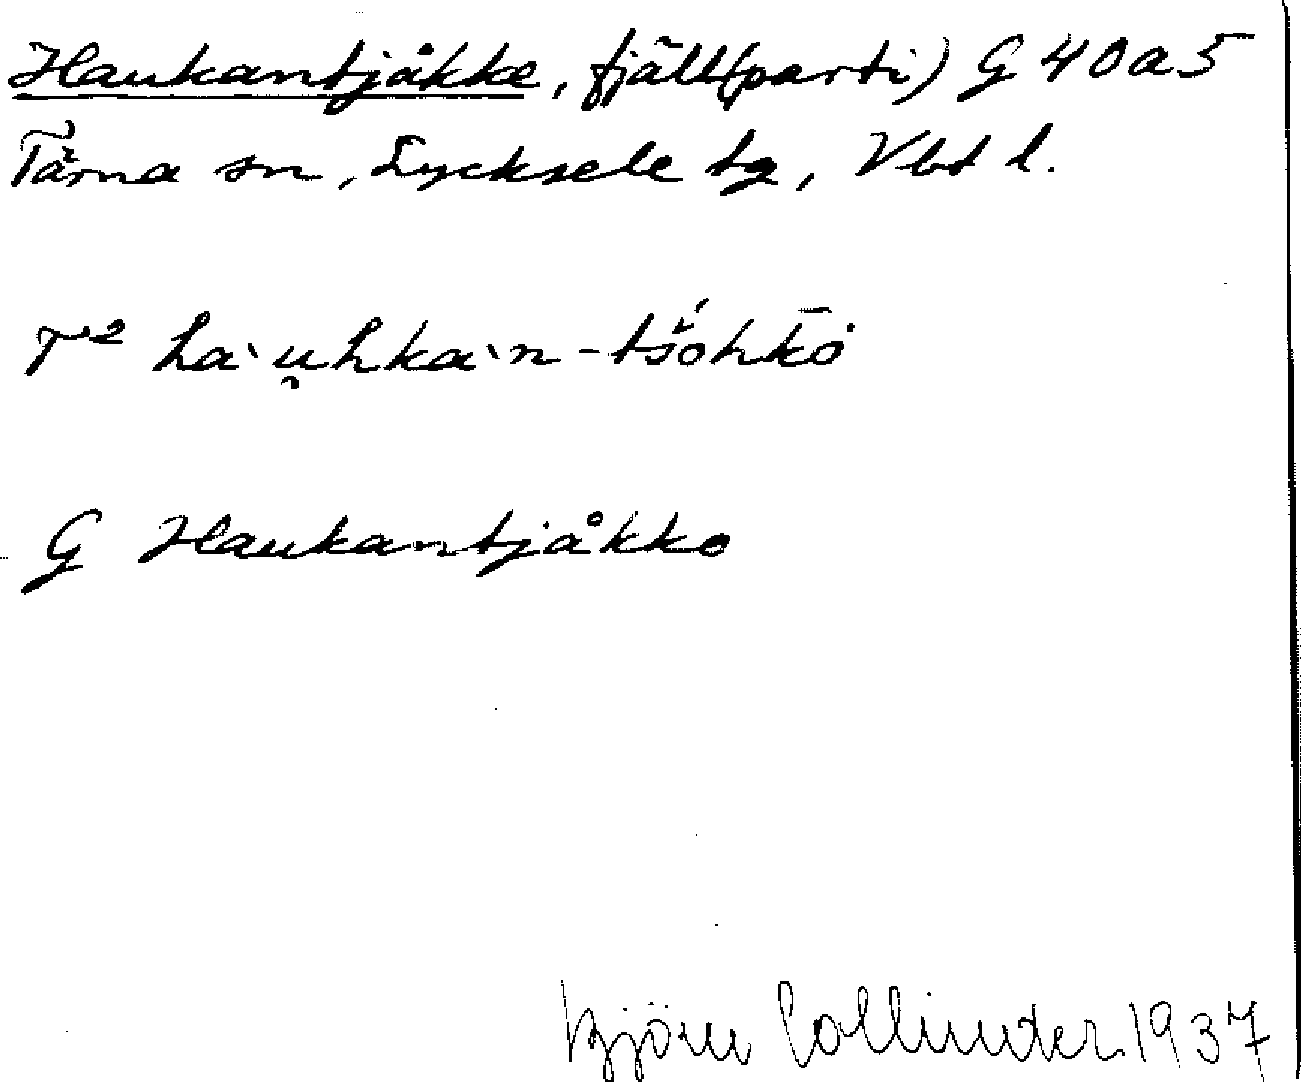 Haukantjåkke, fjäll(parti) G 40a5
Tärna sn, Lycksele tg, Vbt l.
T² ha`u̯hka`n-tšóhkō
G Haukantjåkko
Björn Collinder 1937